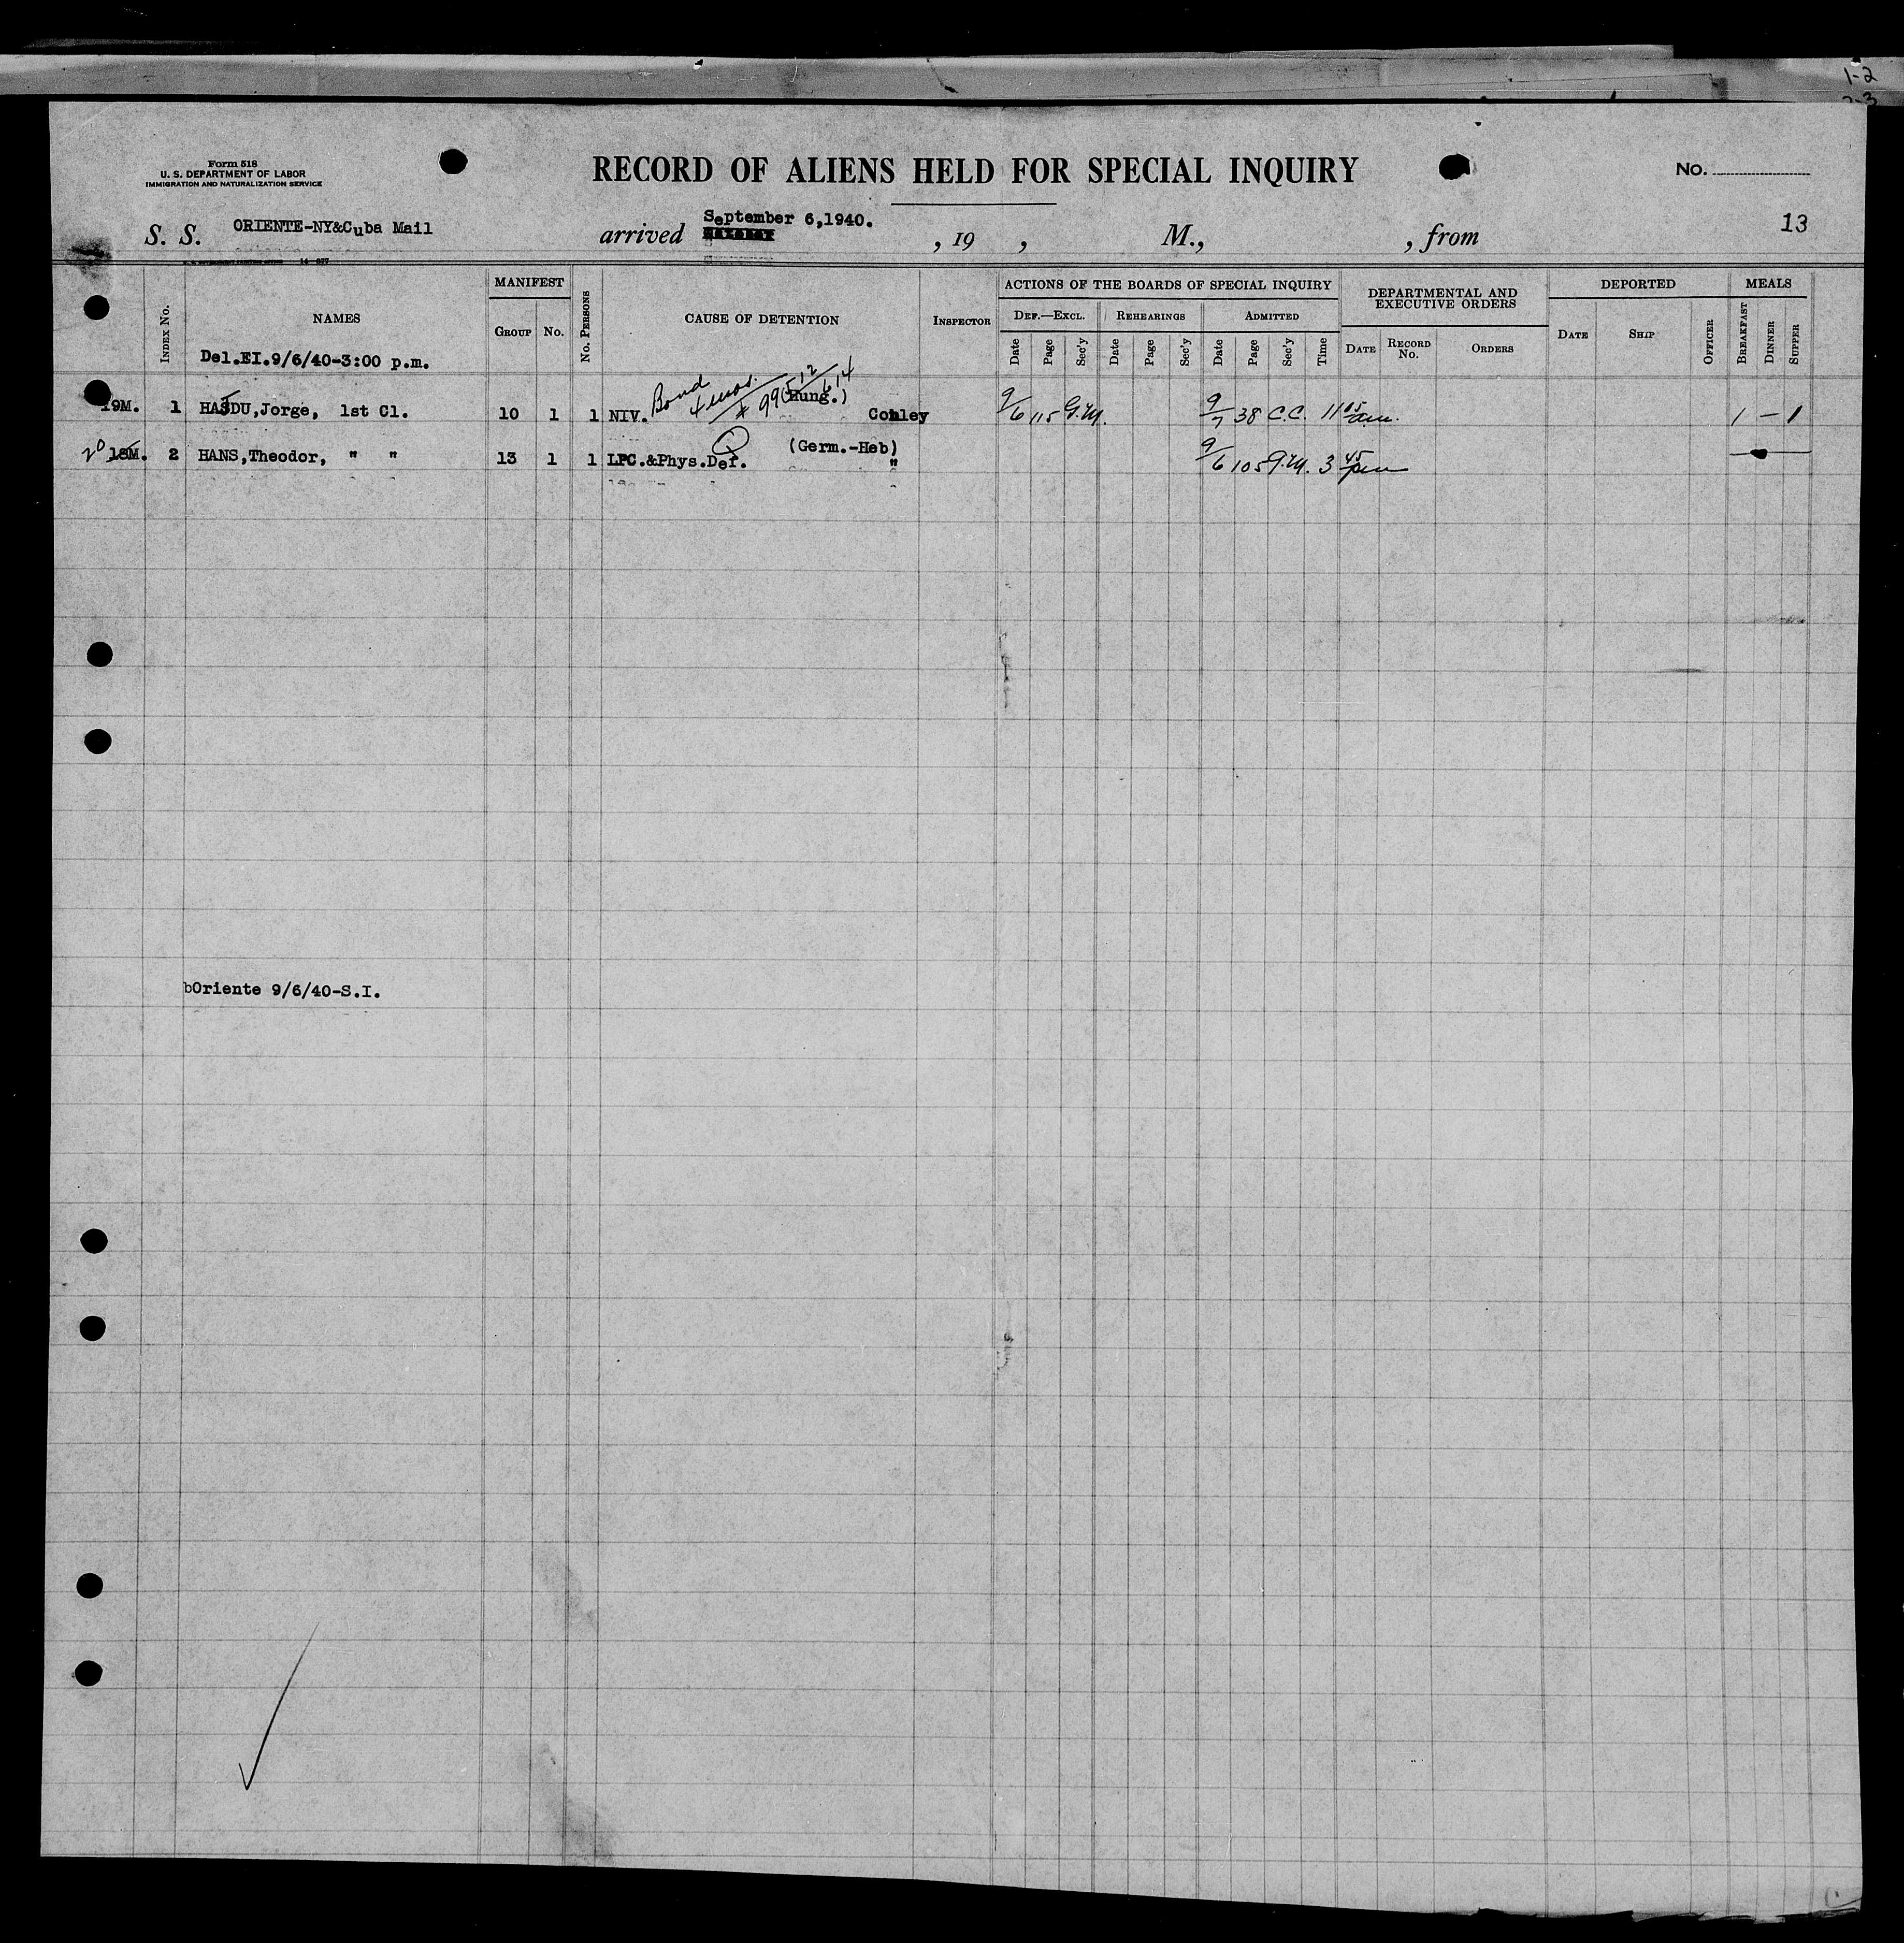 1-2
2-3
Form 518
U. S. DEPARTMENT OF LABOR
IMMIGRATION AND NATURALIZATION SERVICE
RECORD OF ALIENS HELD FOR SPECIAL INQUIRY
No.
S. S. ORIENTE-NY&Cuba Mail arrived September 6,1940. , 19 , M., , from
13
INDEX NO. NAMES MANIFEST GROUP NO. NO. PERSONS CAUSE OF DETENTION INSPECTOR
ACTIONS OF THE BOARDS OF SPECIAL INQUIRY
DEF.—EXCL. REHEARINGS ADMITTED
Date Page Sec'y Date Page Sec'y Date Page Sec'y Time
DEPARTMENTAL AND
EXECUTIVE ORDERS
DATE RECORD NO. ORDERS
DEPORTED
DATE SHIP OFFICER
MEALS
BREAKFAST DINNER SUPPER
Del.EI.9/6/40-3:00 p.m.
Bond 4 mos.
19M. 1 HAJDU,Jorge, 1st Cl. 10 1 1 NIV. (Hung.) Conley 9/6 115 G.M. 9/7 38 C.C. 11 05 am. 1 — 1
20 18M. 2 HANS,Theodor, " " 13 1 1 LPC.&Phys.Def. (Germ.-Heb) " 9/6 105 G.M. 3 45 pm
bOriente 9/6/40-S.I.